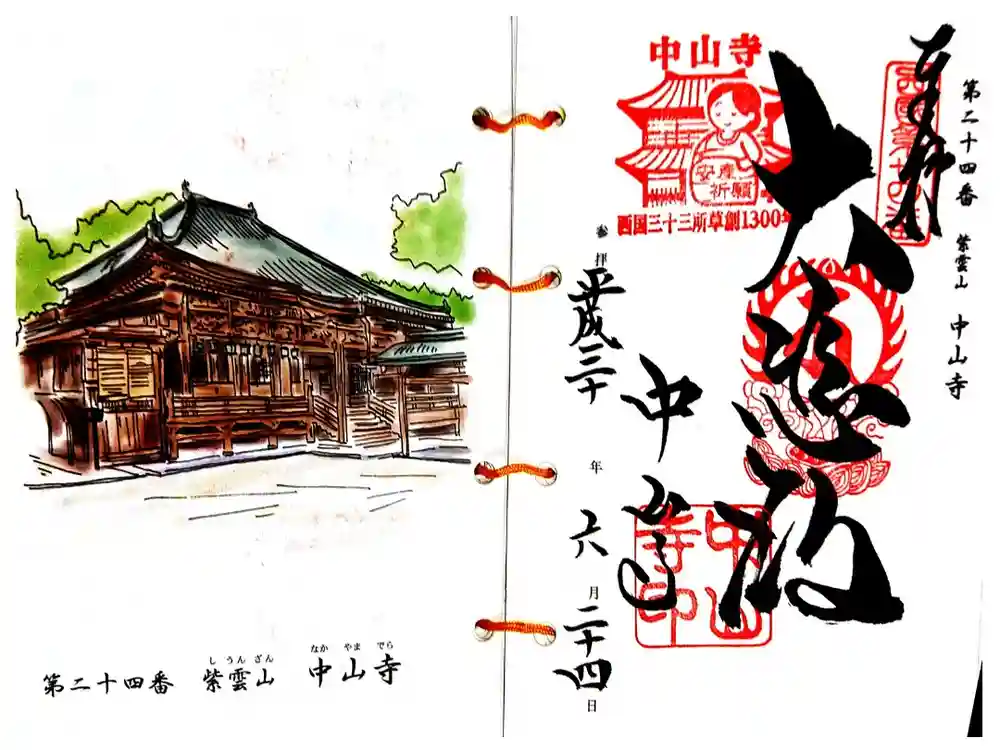 第二十四番 紫雲山 中山寺
しうんざん なかやまでら
中山寺
安産
祈願
西国三十三所草創1300年
奉拝
第二十四番 紫雲山 中山寺
大悲殿
中山寺
中山寺印
参拝 平成三十年 六月 二十四日